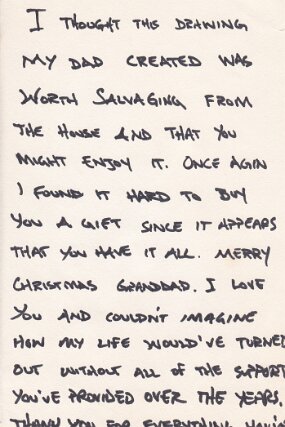 I THOUGHT THIS DRAWING
MY DAD CREATED WAS
WORTH SALVAGING FROM
THE HOUSE AND THAT YOU
MIGHT ENJOY IT. ONCE AGIN
I FOUND IT HARD TO BUY
YOU A GIFT SINCE IT APPEARS
THAT YOU HAVE IT ALL. MERRY
CHRISTMAS GRANDDAD. I LOVE
YOU AND COULDN'T IMAGINE
HOW MY LIFE WOULD'VE TURNED
OUT WITHOUT ALL OF THE SUPPORT
YOU'VE PROVIDED OVER THE YEARS.
THANK YOU FOR EVERYTHING